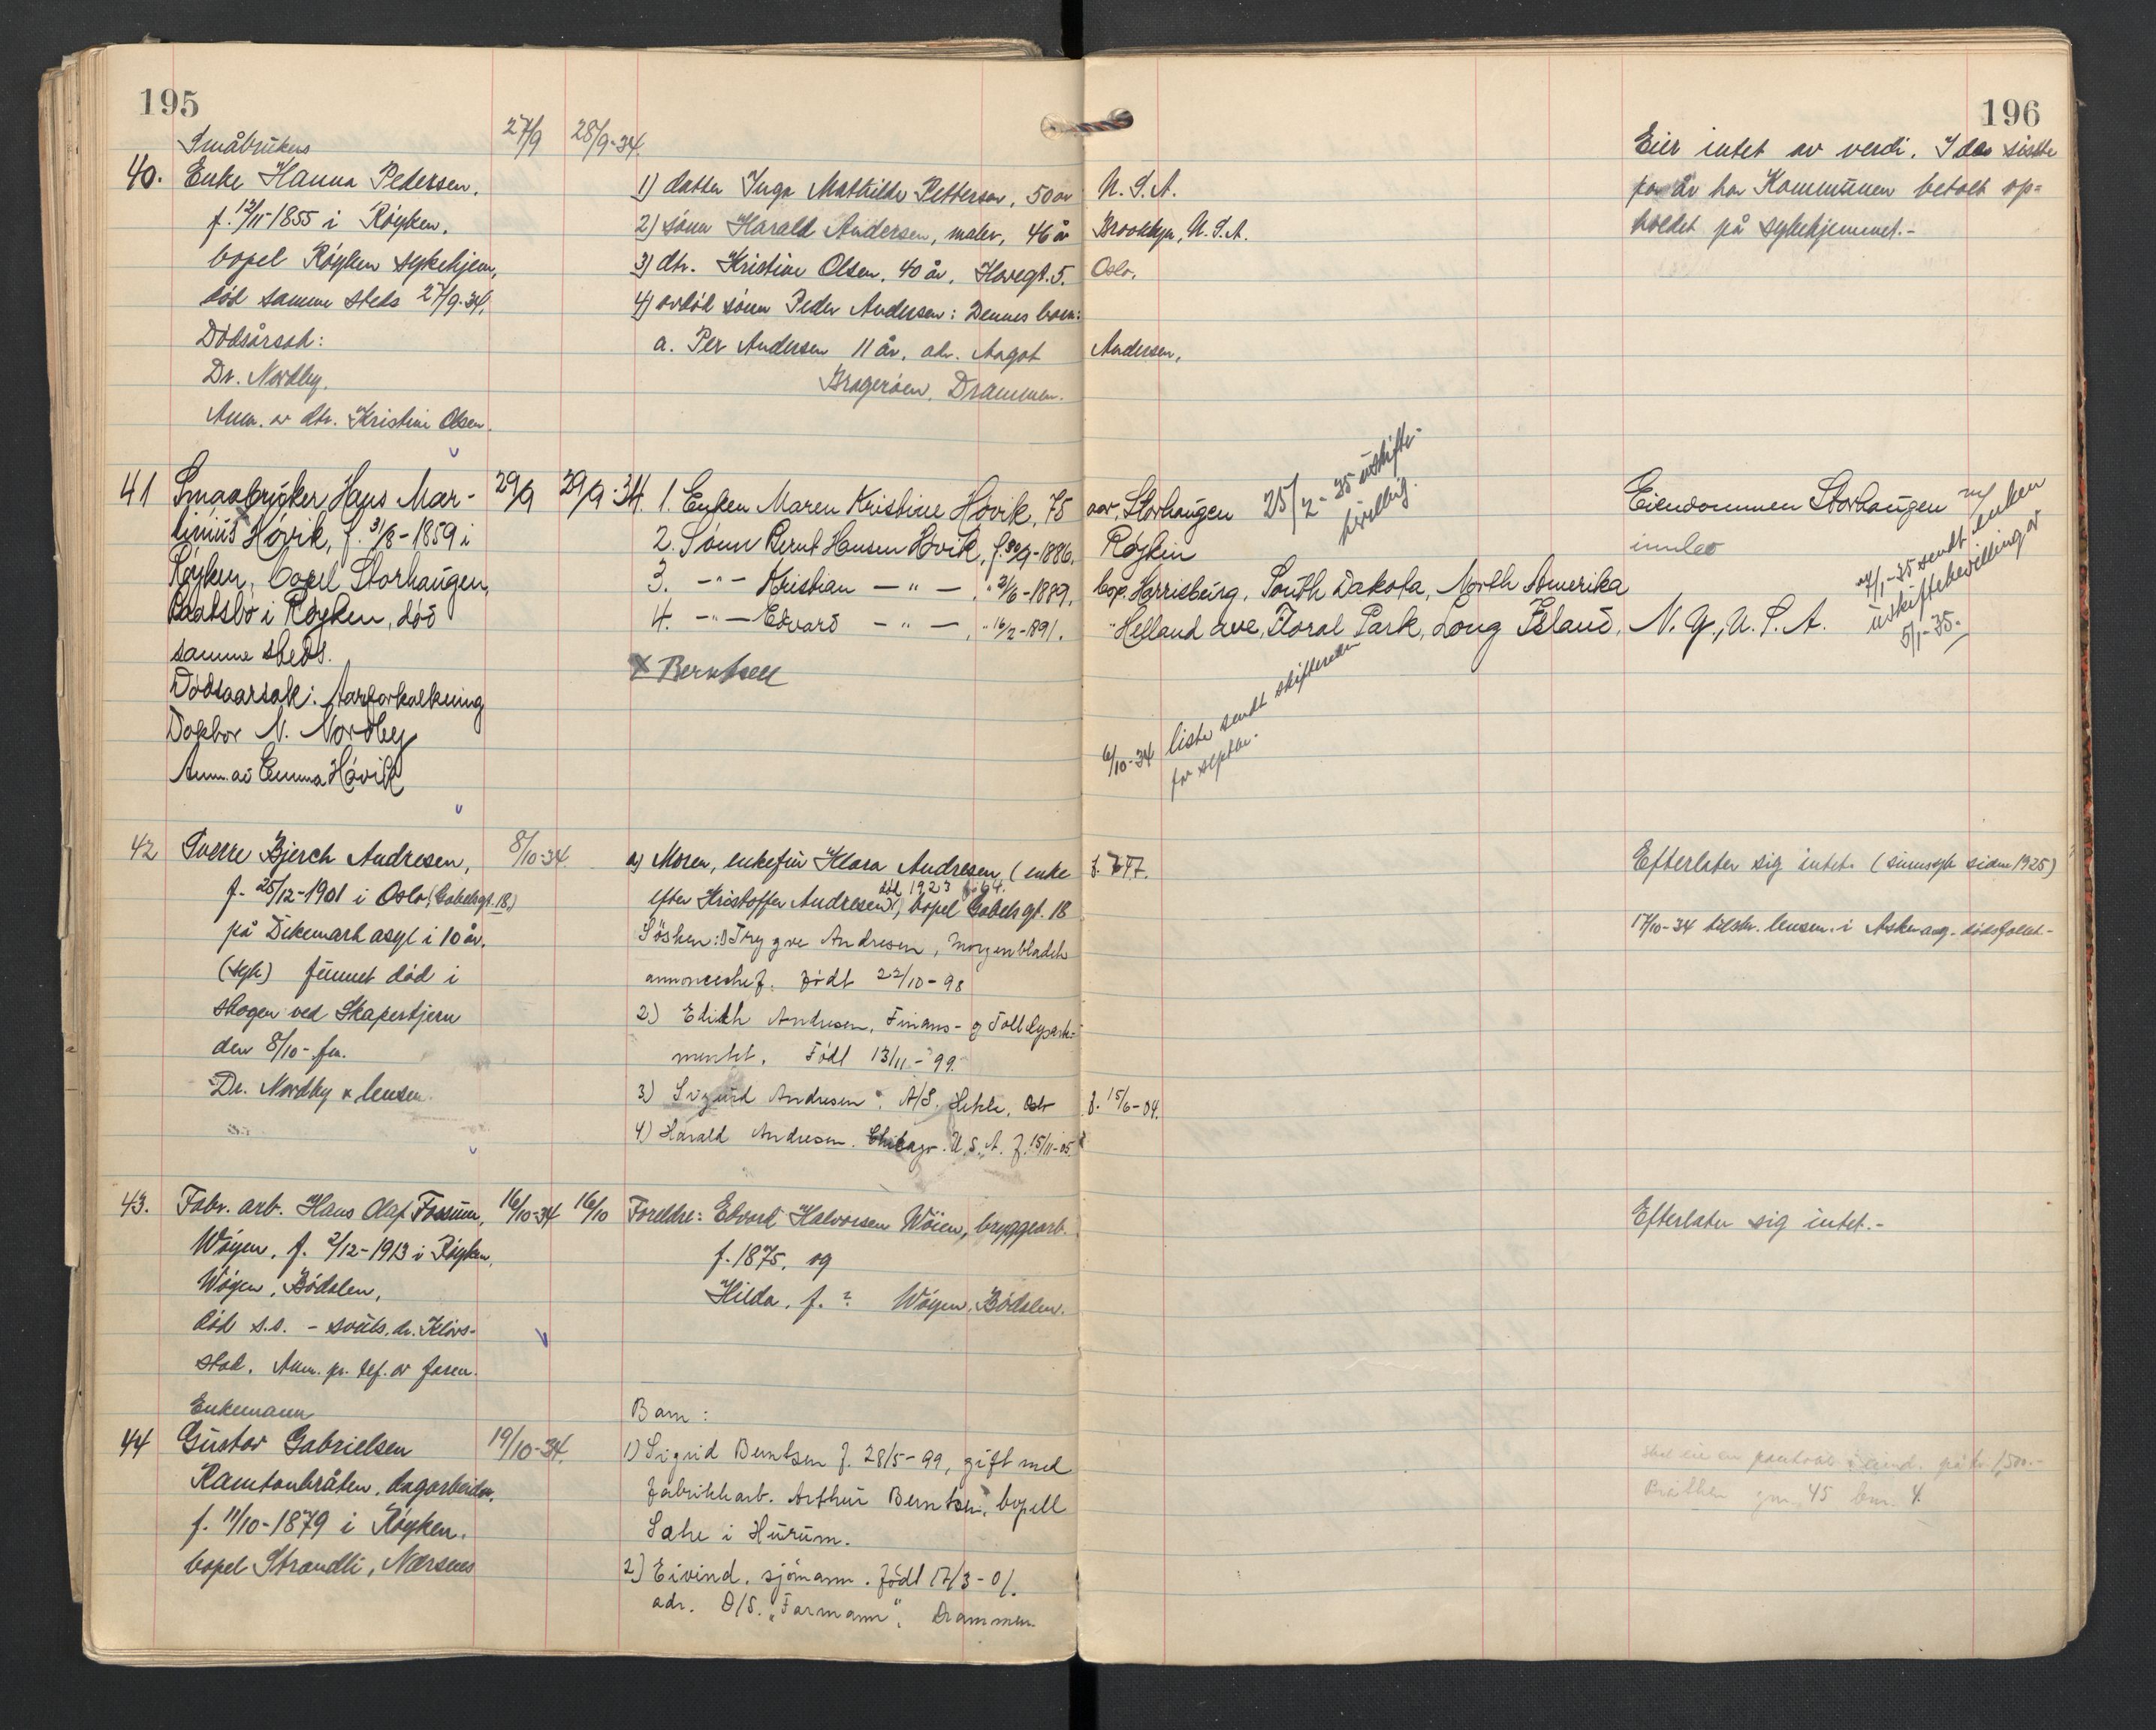 195
196
Småbrukers
40. Enke Hanna Pedersen,
f. 12/11-1855 i Røyken,
bopel Røyken sykehjem,
død samme steds 27/9-34,
Dødsårsak:
Dr. Nordby.
Anm. av dtr. Kristine Olsen.
27/9 28/9-34.
1) datter Inga Mathilde Petterson, 50 år U.S.A.
2) sønn Harald Andersen, maler, 46 år Brooklyn, U.S.A.
3) dtr. Kristine Olsen, 40 år, Havegt. 5. Oslo.
4) avdød sønn Peder Andersen: Dennes barn:
a. Per Andersen 11 år, adr. Aagot Andersen,
Bragerøen, Drammen.
Eier intet av verdi. I de siste
par år har Kommunen betalt op=
holdet på sykehjemmet.-
41 Smaabruker Hans Mar-
tinius Høvik, f. 31/8-1859 i
Røyken, bopel Storhaugen,
i Røyken, død
samme steds.
Dødsaarsak: Aareforkalkning
Doktor N. Nordby
Anm. av Emma Høvik
29/9 29/9-34.
1. Enken Maren Kristine Høvik, 75 aar, Storhaugen
2. Sønn Bernt Hansen Høvik, f. 30/9-1886. Røyken
3. -"- Kristian -"-, " 2/6-1889, bop. Harrisburg, South Dakota, North Amerika
4. -"- Edvard -"-, " 16/2-1891. " Helland ave, Floral Park, Long Island, N.Y., U.S.A.
x Berntsen
25/2-35 uskifte-
bevillig.
6/10-34 liste sendt skifteretten
for septbr.
Eiendommen Storhaugen m/
innbo
4/1-35 sendt enken
uskiftebevillingar
5/1-35.
42 Sverre Bjerch Andresen,
f. 25/12-1901 i Oslo, (Gabelsgt. 18)
på Dikemark asyl i 10 år,
(syk) funnet død i
skogen ved Skapertjern
den 8/10- fm.
Dr. Nordby x lensm.
8/10-34.
a) Moren, enkefru Klara Andresen (enke
død 1923
efter Kristoffer Andresen), bopel Gabels gt. 18
Søsken: 1) Trygve Andresen, Morgenbladets
annoncechef. Født 22/10-98
2) Edith Andresen, Finans- og Tolldeparte-
mentet. Født 13/11-99.
3) Sigurd Andresen, A/S. Oslo f. 15/6-04.
4) Harald Andresen. Chicago. U.S.A. f. 15/11-05.
Efterlater sig intet. (sinnssyk siden 1925)
17/10-34 tilskr. lensm. i Asker ang. dødsfallet-
43. Fabr. arb. Hans Olaf Fossum,
Wøyen, f. 2/12-1913 i Røyken,
Wøyen, Bødalen,
død s.s. - dr. Klovs-
stad. Anm. pr. tlf. av faren.
16/10-34 16/10
Foreldre: Edvard Halvorsen Wøien, bryggearb.
f. 1875, og
Hilda, f. ? Wøyen, Bødalen.
Efterlater sig intet.-
Enkemann
44 Gustav Gabrielsen
Ramtonbråten, dagarbeider,
f. 11/10-1879 i Røyken.
bopel Strandli, Nærsnes
19/10-34.
Barn:
1) Sigrid Berntsen f. 28/5-99, gift med
fabrikkarb. Arthur Berntsen, bopell
Sætre i Hurum.
2) Eivind, sjømann. født 17/3-01.
adr. D/S. "Farmann", Drammen
kr. 1,500.-
gnr. 45 bnr. 4.